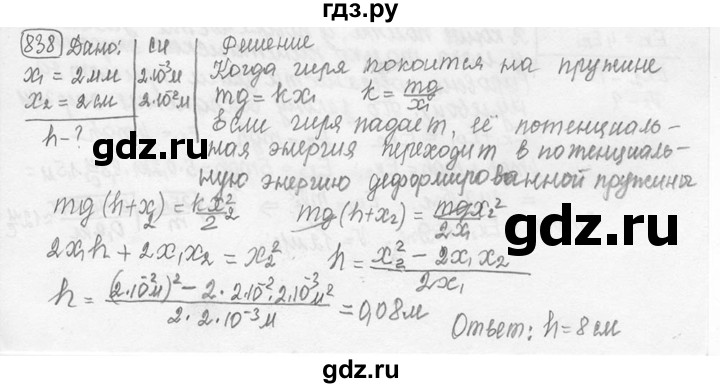 гдз.ру
838 Дано: СИ Решение
x₁ = 2 мм 2·10⁻³ м Когда гиря покоится на пружине
x₂ = 2 см 2·10⁻² м mg = kx₁ k = mg/x₁
h - ? Если гиря падает, её потенциаль-
ная энергия переходит в потенциаль-
ную энергию деформированной пружины
mg(h+x₂) = kx₂²/2 mg(h+x₂) = mgx₂²/2x₁
2x₁h + 2x₁x₂ = x₂² h = (x₂² - 2x₁x₂)/2x₁
h = ((2·10⁻² м)² - 2·2·10⁻²·2·10⁻³ м²)/(2·2·10⁻³ м) = 0,08 м
Ответ: h = 8 см
gdz.ru
gdz.ru
gdz.ru
gdz.ru